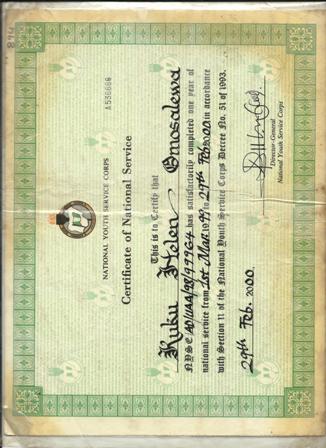 A536668
NATIONAL YOUTH SERVICE CORPS
Certificate of National Service
This is to Certify that
Kuku Helen Omosalewa
has satisfactorily completed one year of
national service from 1st Mar. 1999 to 29th Feb. 2000 in accordance
with Section 11 of the National Youth Service Corps Decree No. 51 of 1993.
29th Feb. 2000
Director-General
National Youth Service Corps